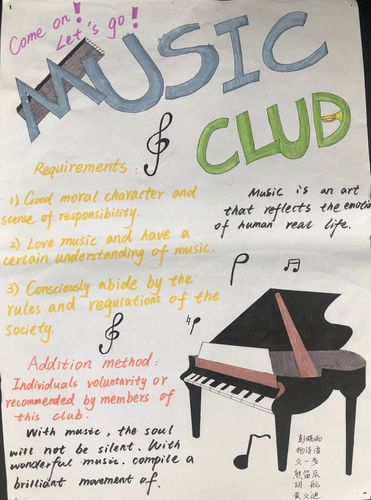 Come on!
Let's go!
MUSIC
CLUB
Requirements:
1) Good moral character and
scense of responsibility.
2) Love music and have a
certain understanding of music.
3) Consciously abide by the
rules and regulations of the
society.
Music is an art
that reflects the emotion
of human real life.
Addition method:
Individuals voluntarity or
recommended by members of
this club.
With music, the soul
will not be silent. With
wonderful music. compile a
brilliant movement of.
熊笛辰